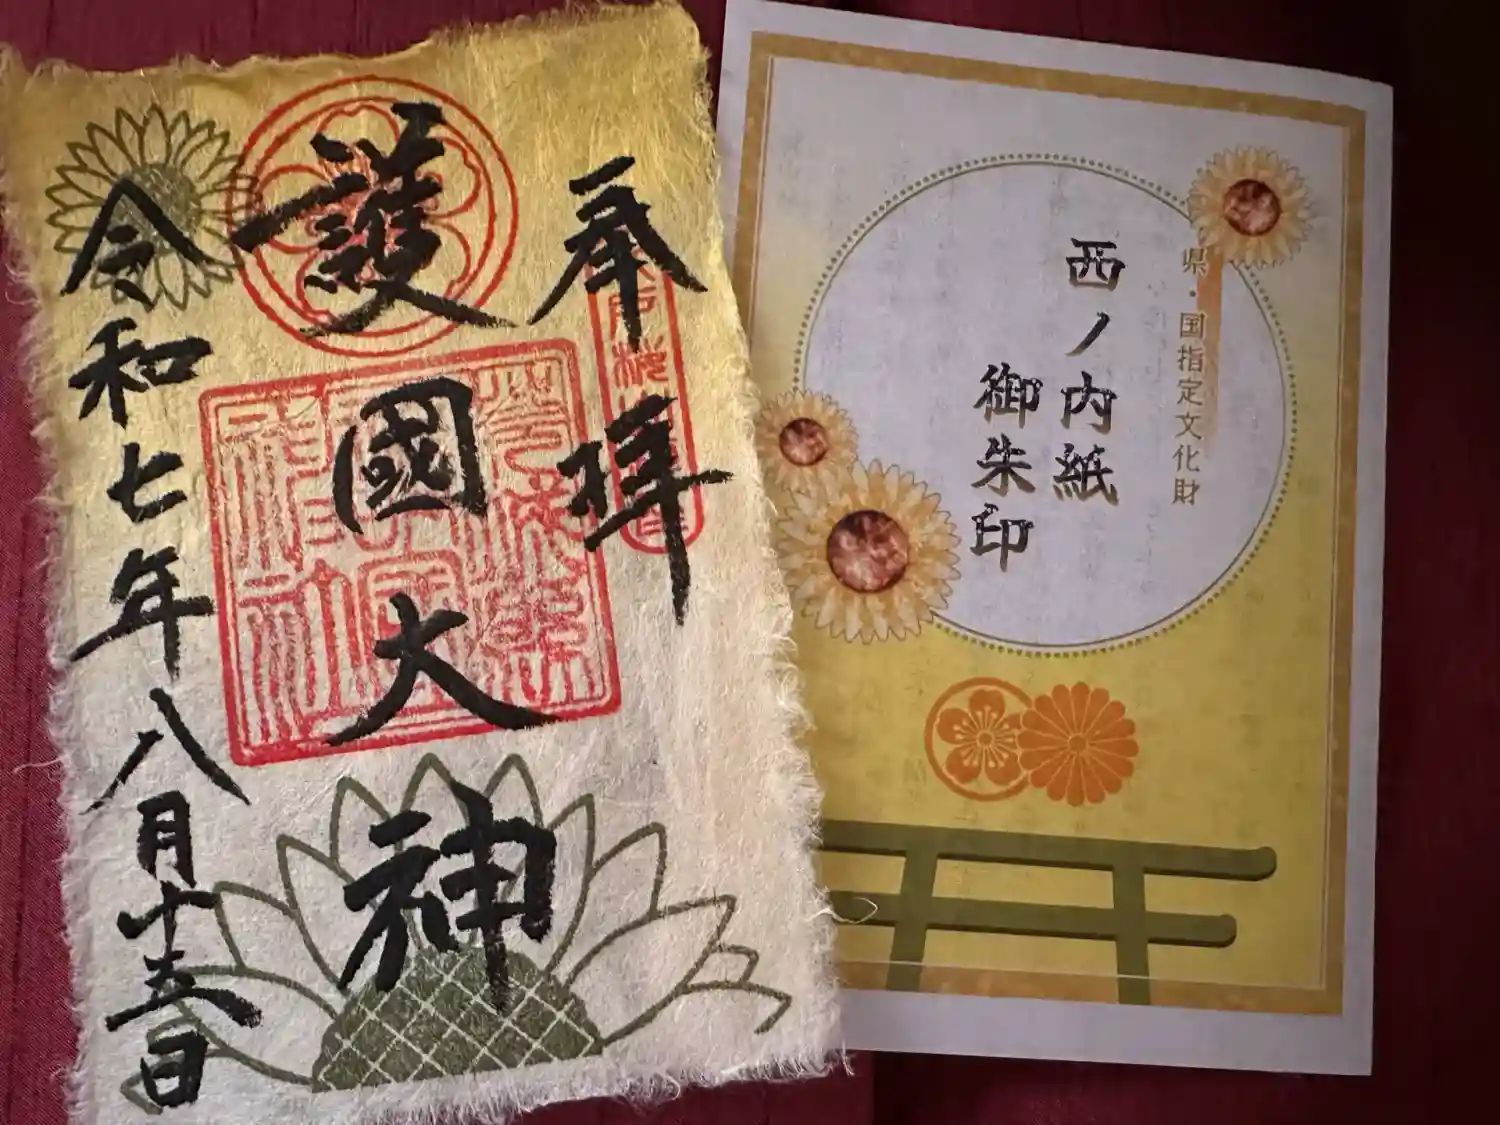 奉拝
護國大神
令和七年八月十五日
県・国指定文化財
西ノ内紙
御朱印